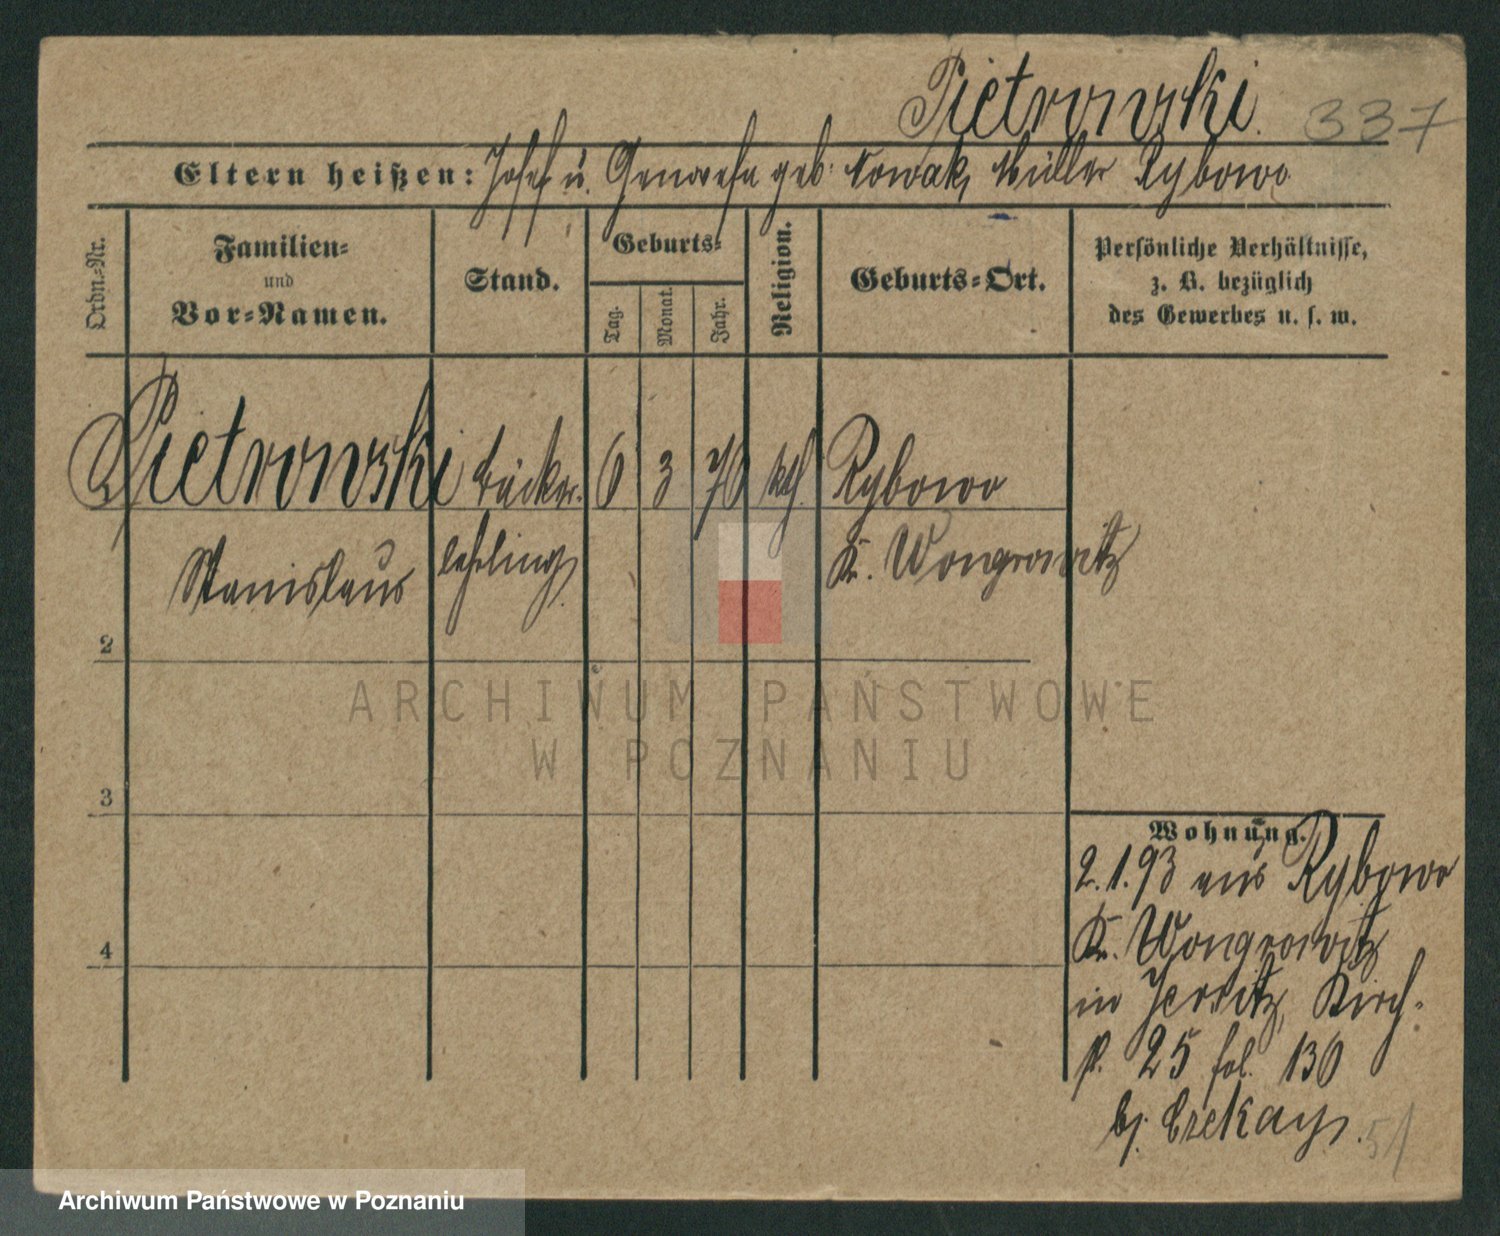 Pietrowski. 337
Eltern heißen: Josef u. Genowefa geb. Nowak, Müller Rybowo
Ordn.-Nr.
Familien-
und
Vor-Namen.
Stand.
Geburts-
Tag.
Monat.
Jahr.
Religion.
Geburts-Ort.
Persönliche Verhältnisse,
z. B. bezüglich
des Gewerbes u. s. w.
Pietrowski Bäcker- 6 3 70 kth. Rybowo
Stanislaus lehrling. Kr. Wongrowitz
2
3
4
Wohnung.
2.1.93 aus Rybowo
Kr. Wongrowitz
in Jersitz, Kirch-
p. 25 fol. 136
bj. Czekay.
ARCHIWUM PAŃSTWOWE
W POZNANIU
Archiwum Państwowe w Poznaniu